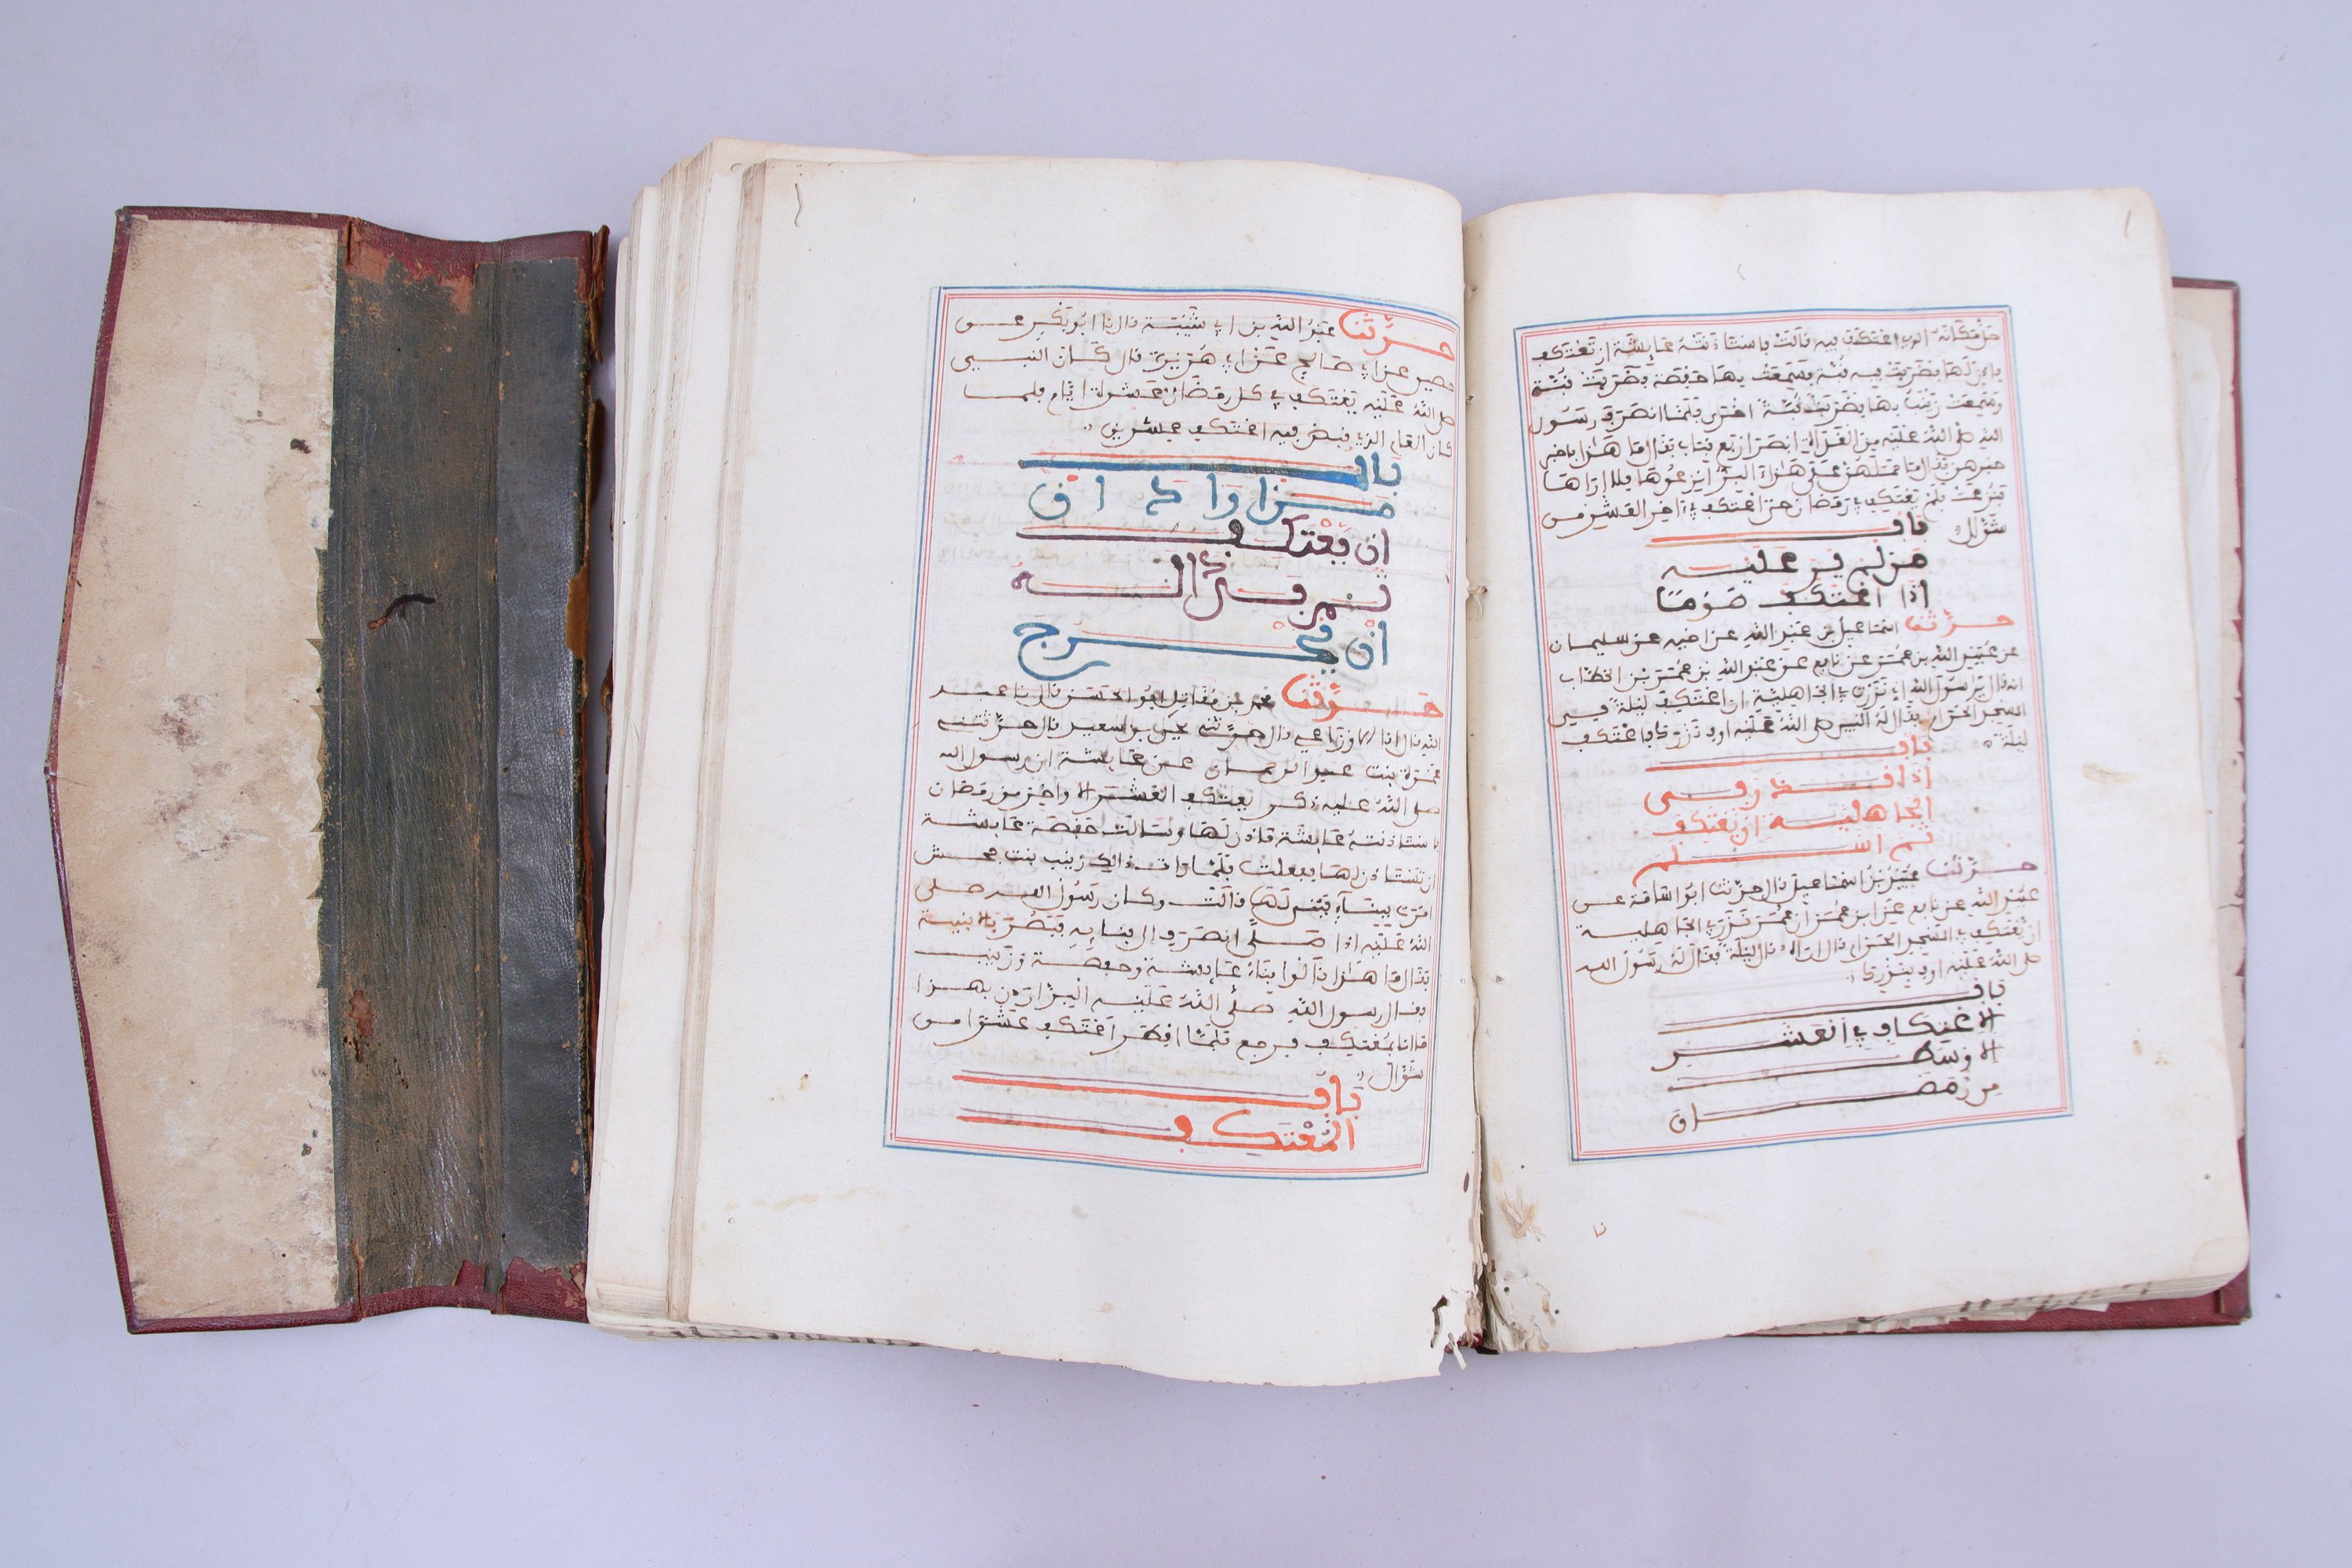 حل مكانه الذي اعتكف فيه فالت فاستاذنته عايشة ان تعتكف
فاذن لها فضربت فيه قبة فسمعت بها حفصة فضربت قبة
وسمعت زينب بها فضربت قبة اخرى فلما انصرف رسول
الله صلى الله عليه من الغداة ابصر اربع قباب فقال ما هذا فاخبر
خبرهن فقال ما حملهن على هذا ءالبر انزعوها فلا اراها
فنزعت فلم يعتكف في رمضان حتى اعتكف في ءاخر العشر من
شوال
باب
من لم ير عليه
اذا اعتكف صوما
حدثنا اسماعيل بن عبد الله عن اخيه عن سليمان
عن عبيد الله بن عمر عن نافع عن عبد الله بن عمر عن عمر بن الخطاب
انه قال يرسول الله اني نذرت في الجاهلية ان اعتكف ليلة في
المسجد الحرام فقال له النبي صلى الله عليه اوف نذرك فاعتكف
ليلة
باب
اذا نذر في
الجاهلية ان يعتكف
ثم اسلم
حدثنا عبيد بن اسماعيل قال حدثنا ابو اسامة عن
عبيد الله عن نافع عن ابن عمر ان عمر نذر في الجاهلية
ان يعتكف في المسجد الحرام قال اراه قال ليلة فقال له رسول الله
صلى الله عليه اوف بنذرك
باب
الاعتكاف في العشر
الاوسط
من رمضان
حدثنا عبد الله بن ابي شيبة قال نا ابو بكر عن
حصين عن ابي صالح عن ابي هريرة قال كان النبي
صلى الله عليه يعتكف في كل رمضان عشرة ايام فلما
كان العام الذي قبض فيه اعتكف عشرين
باب
من اراد
ان يعتكف
ثم بدا له
ان يخرج
حدثنا محمد بن مقاتل ابو الحسن قال نا عبد
الله قال انا الاوزاعي قال حدثني يحيى بن سعيد قال حدثتني
عمرة بنت عبد الرحمان عن عايشة ان رسول الله
صلى الله عليه ذكر يعتكف العشر الاواخر من رمضان
فاستاذنته عايشة فاذن لها وسالت حفصة عايشة
ان تستاذن لها ففعلت فلما رات ذالك زينب بنت جحش
امرت ببناء فبني لها قالت وكان رسول الله صلى
الله عليه اذا صلى انصرف الى بنايه فبصر بالابنية
فقال ما هذا قالوا بناء عايشة وحفصة وزينب
فقال رسول الله صلى الله عليه البر اردن بهذا
ما انا بمعتكف فرجع فلما افطر اعتكف عشرا من
شوال
باب
المعتكف